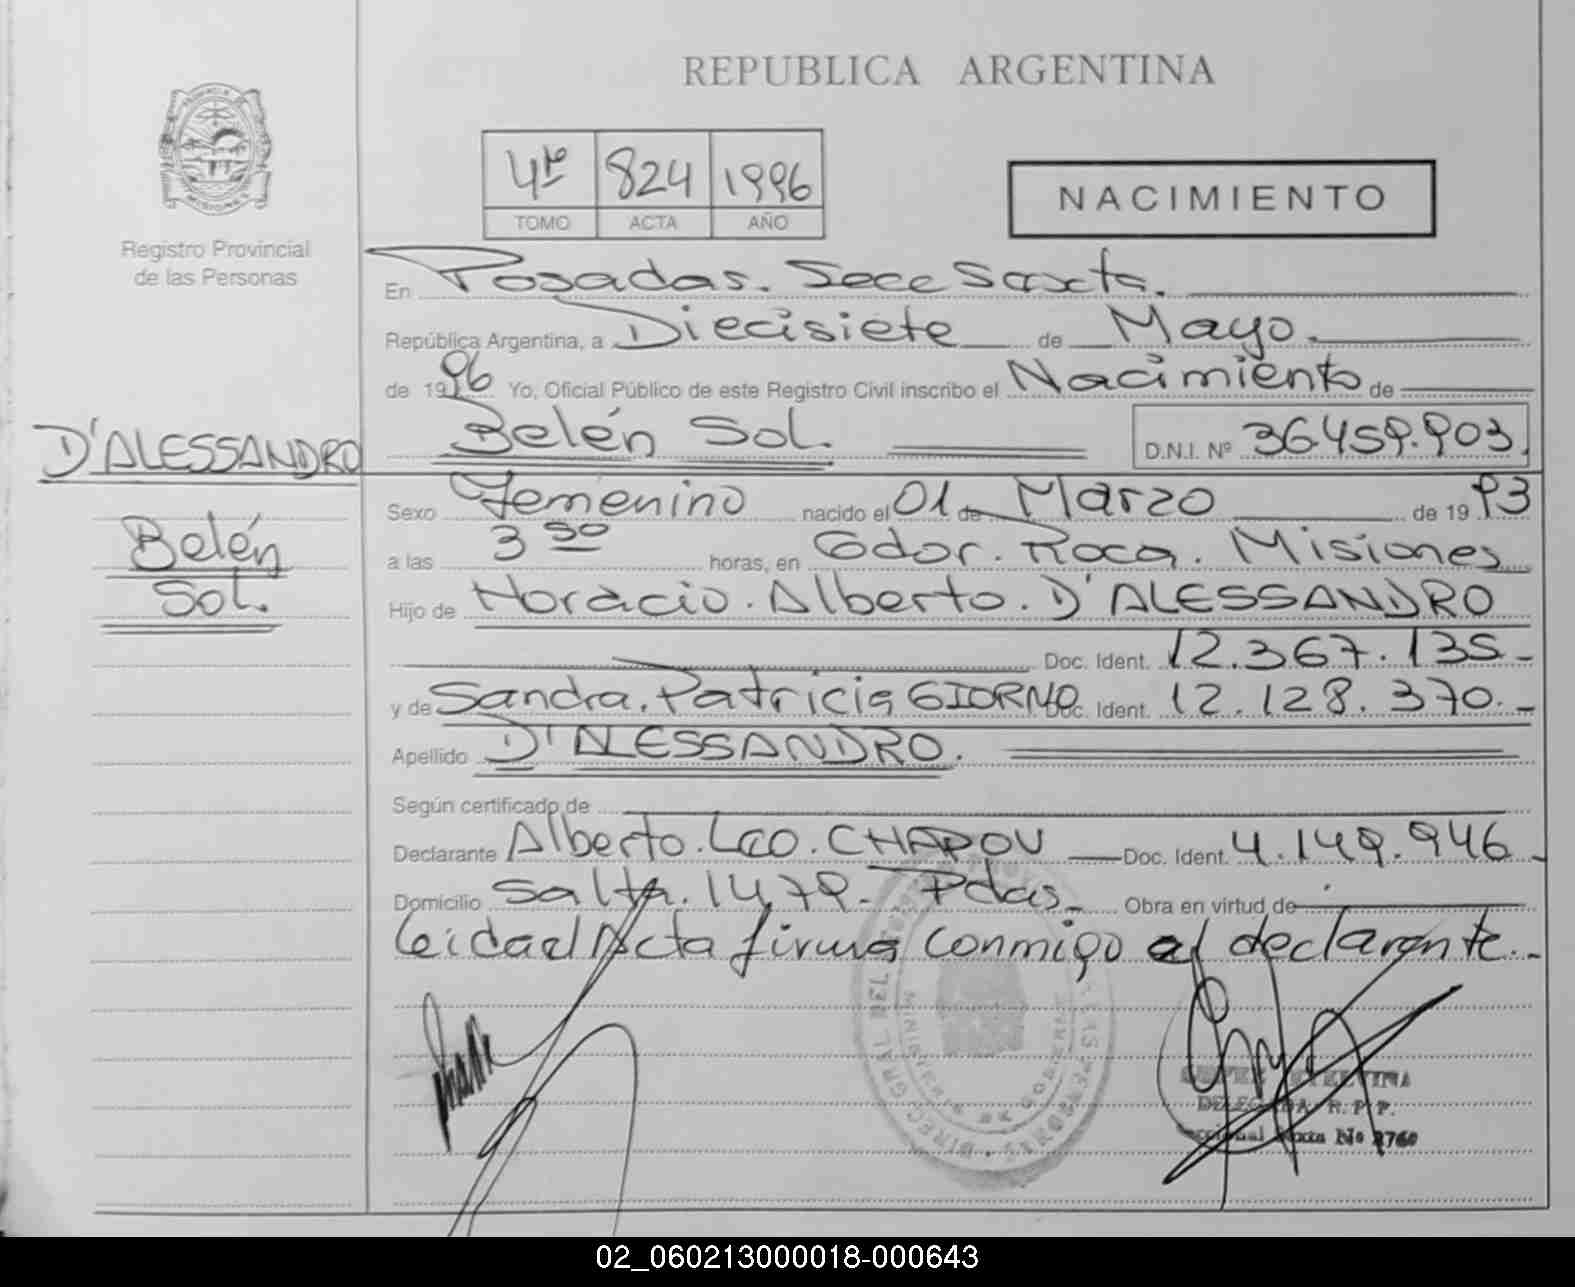 REPUBLICA ARGENTINA
4to 824 1996
TOMO ACTA AÑO
NACIMIENTO
PROVINCIA DE MISIONES
Registro Provincial
de las Personas
En Posadas. Secc Sexta.
República Argentina, a Diecisiete de Mayo.
de 1996 Yo, Oficial Público de este Registro Civil inscribo el Nacimiento de
Belén Sol. D.N.I. Nº 36.459.903.
D'ALESSANDRO
Belén
Sol.
Sexo Femenino nacido el 01 de Marzo de 1993
a las 3 30 horas, en Gdor. Roca. Misiones
Hijo de Horacio. Alberto. D'ALESSANDRO
Doc. Ident. 12.367.135.-
y de Sandra. Patricia GIORNO Doc. Ident. 12.128.370.-
Apellido D'ALESSANDRO.
Según certificado de
Declarante Alberto. Leo. CHAPOU Doc. Ident. 4.149.946-
Domicilio Salta. 1479- Pdas- Obra en virtud de
Leida el Acta firma conmigo el declarante.-
DIREC. GRAL DEL REGISTRO
DE LAS PERSONAS
MINISTERIO DE GOBIERNO
ETELVINA
DELEGADA R. P. P.
Seccional Sexta No 2760
02_060213000018-000643